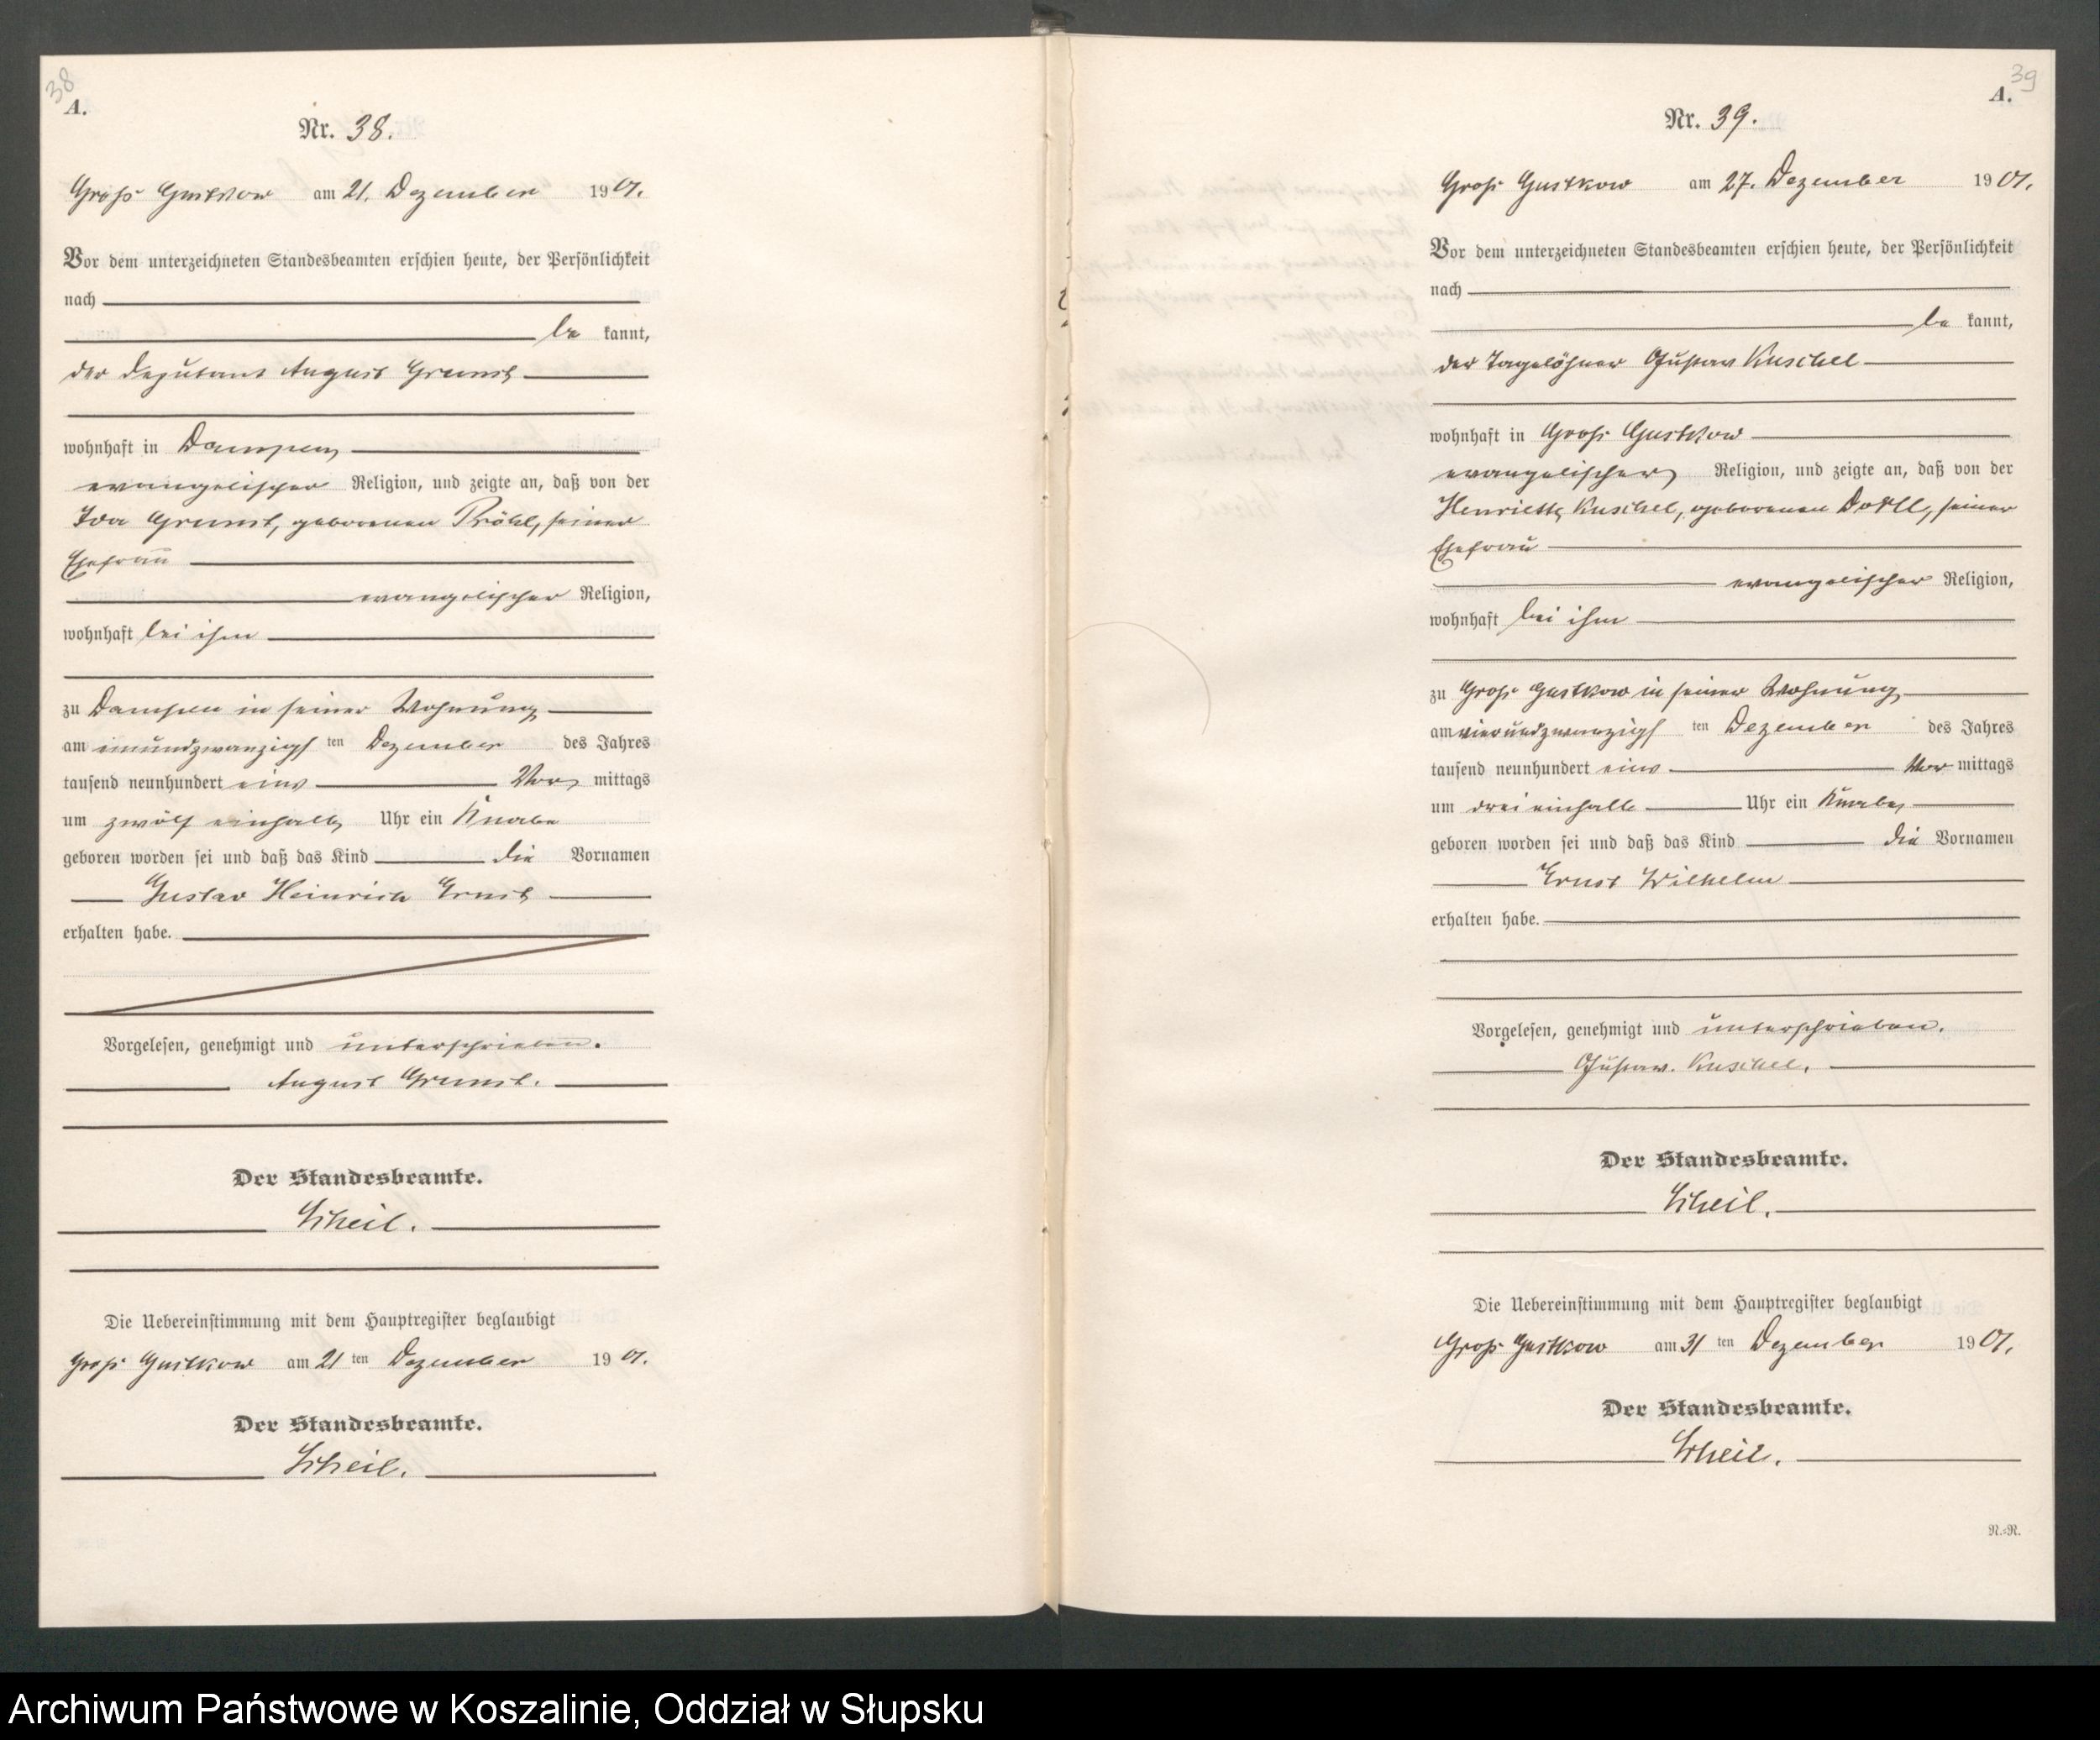 38
A.
Nr. 38.
Groß Gustkow am 21. Dezember 1901.
Vor dem unterzeichneten Standesbeamten erschien heute, der Persönlichkeit
nach
be kannt,
der Deputant August Grunst
wohnhaft in Dampen
evangelischer Religion, und zeigte an, daß von der
Ida Grunst, geborenen Pröhl, seiner
Ehefrau
evangelischer Religion,
wohnhaft bei ihm
zu Dampen in seiner Wohnung
am einundzwanzigs ten Dezember des Jahres
tausend neunhundert eins Vor mittags
um zwölf einhalb Uhr ein Knabe
geboren worden sei und daß das Kind die Vornamen
Gustav Heinrich Ernst
erhalten habe.
Vorgelesen, genehmigt und unterschrieben.
August Grunst.
Der Standesbeamte.
Scheil.
Die Uebereinstimmung mit dem Hauptregister beglaubigt
Groß Gustkow am 21 ten Dezember 1901.
Der Standesbeamte.
Scheil.
39
A.
Nr. 39.
Groß Gustkow am 27. Dezember 1901.
Vor dem unterzeichneten Standesbeamten erschien heute, der Persönlichkeit
nach
be kannt,
der Tagelöhner Gustav Kuschel
wohnhaft in Groß Gustkow
evangelischer Religion, und zeigte an, daß von der
Henriette Kuschel, geborenen seiner
Ehefrau
evangelischer Religion,
wohnhaft bei ihm
zu Groß Gustkow in seiner Wohnung
am vierundzwanzigs ten Dezember des Jahres
tausend neunhundert eins Vor mittags
um drei einhalb Uhr ein Knabe
geboren worden sei und daß das Kind die Vornamen
Ernst Wilhelm
erhalten habe.
Vorgelesen, genehmigt und unterschrieben.
Gustav. Kuschel.
Der Standesbeamte.
Scheil.
Die Uebereinstimmung mit dem Hauptregister beglaubigt
Groß Gustkow am 31 ten Dezember 1901.
Der Standesbeamte.
Scheil.
N.-N.
Archiwum Państwowe w Koszalinie, Oddział w Słupsku